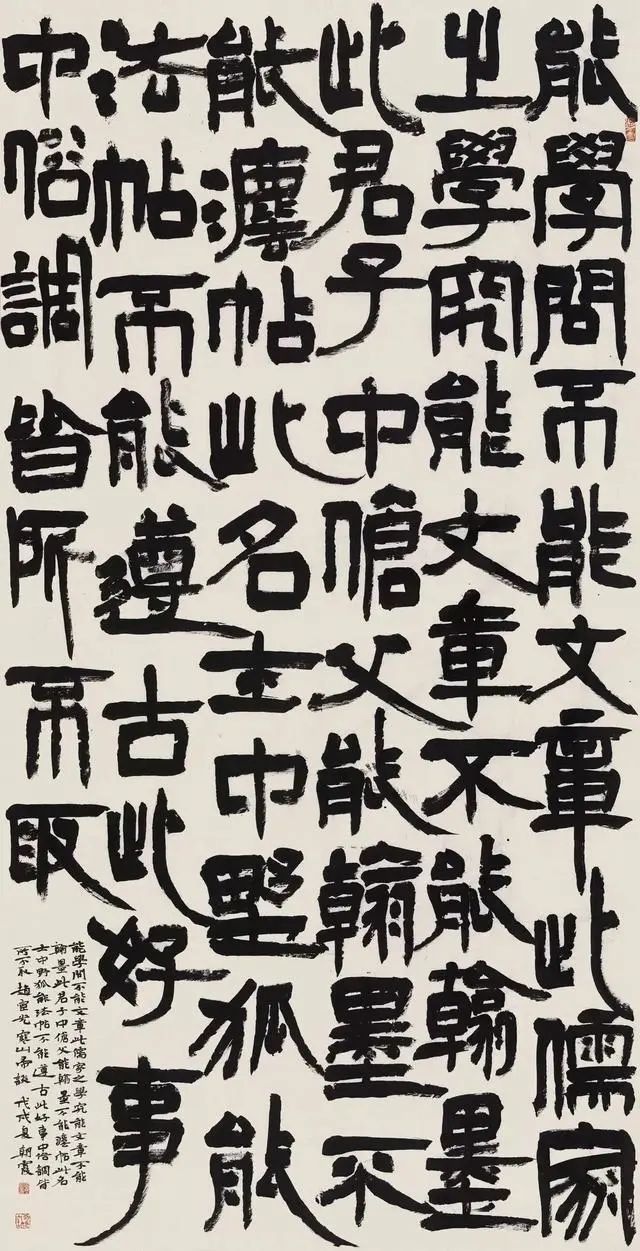 能學問不能文章此儒家
之學究能文章不能翰墨
此君子中傖父能翰墨不
能灋帖此名士中野狐能
法帖不能遵古此好事
中俗調皆所不取
能學問不能文章此儒家之學究能文章不能
翰墨此君子中傖父能翰墨不能灋帖此名
士中野狐能法帖不能遵古此好事俗調皆
所不取 趙宧光寒山帚談 戊戌夏朝霞